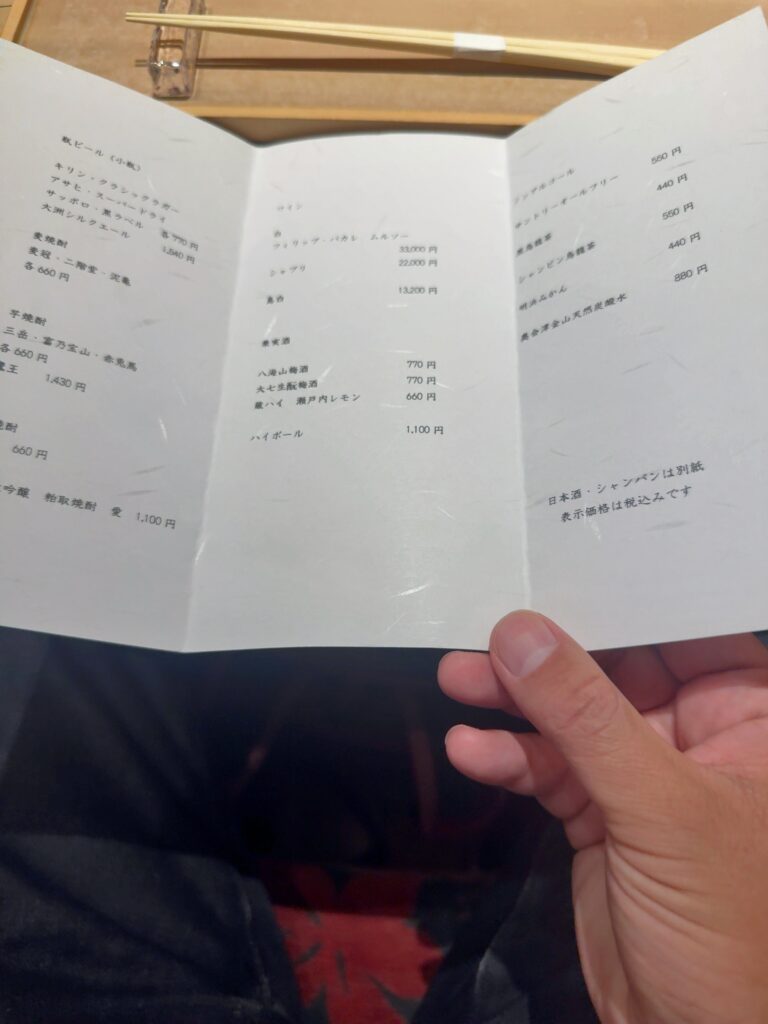 瓶ビール(小瓶)
キリン・クラシックラガー
アサヒ・スーパードライ
サッポロ・黒ラベル 各770円
大洲シルクエール 1,540円
麦焼酎
麦冠・二階堂・泥亀
各660円
芋焼酎
三岳・富乃宝山・赤兎馬
各660円
蔵王 1,430円
焼酎
660円
吟醸 粕取焼酎 愛 1,100円
ワイン
白
フィリップ・パカレ ムルソー 33,000円
シャブリ 22,000円
13,200円
果実酒
八海山梅酒 770円
大七生酛梅酒 770円
蔵ハイ 瀬戸内レモン 660円
ハイボール 1,100円
ノンアルコール
サントリーオールフリー 550円
黒烏龍茶 440円
ジャンピン烏龍茶 550円
明浜みかん 440円
奥会津金山天然炭酸水 880円
日本酒・シャンパンは別紙
表示価格は税込みです